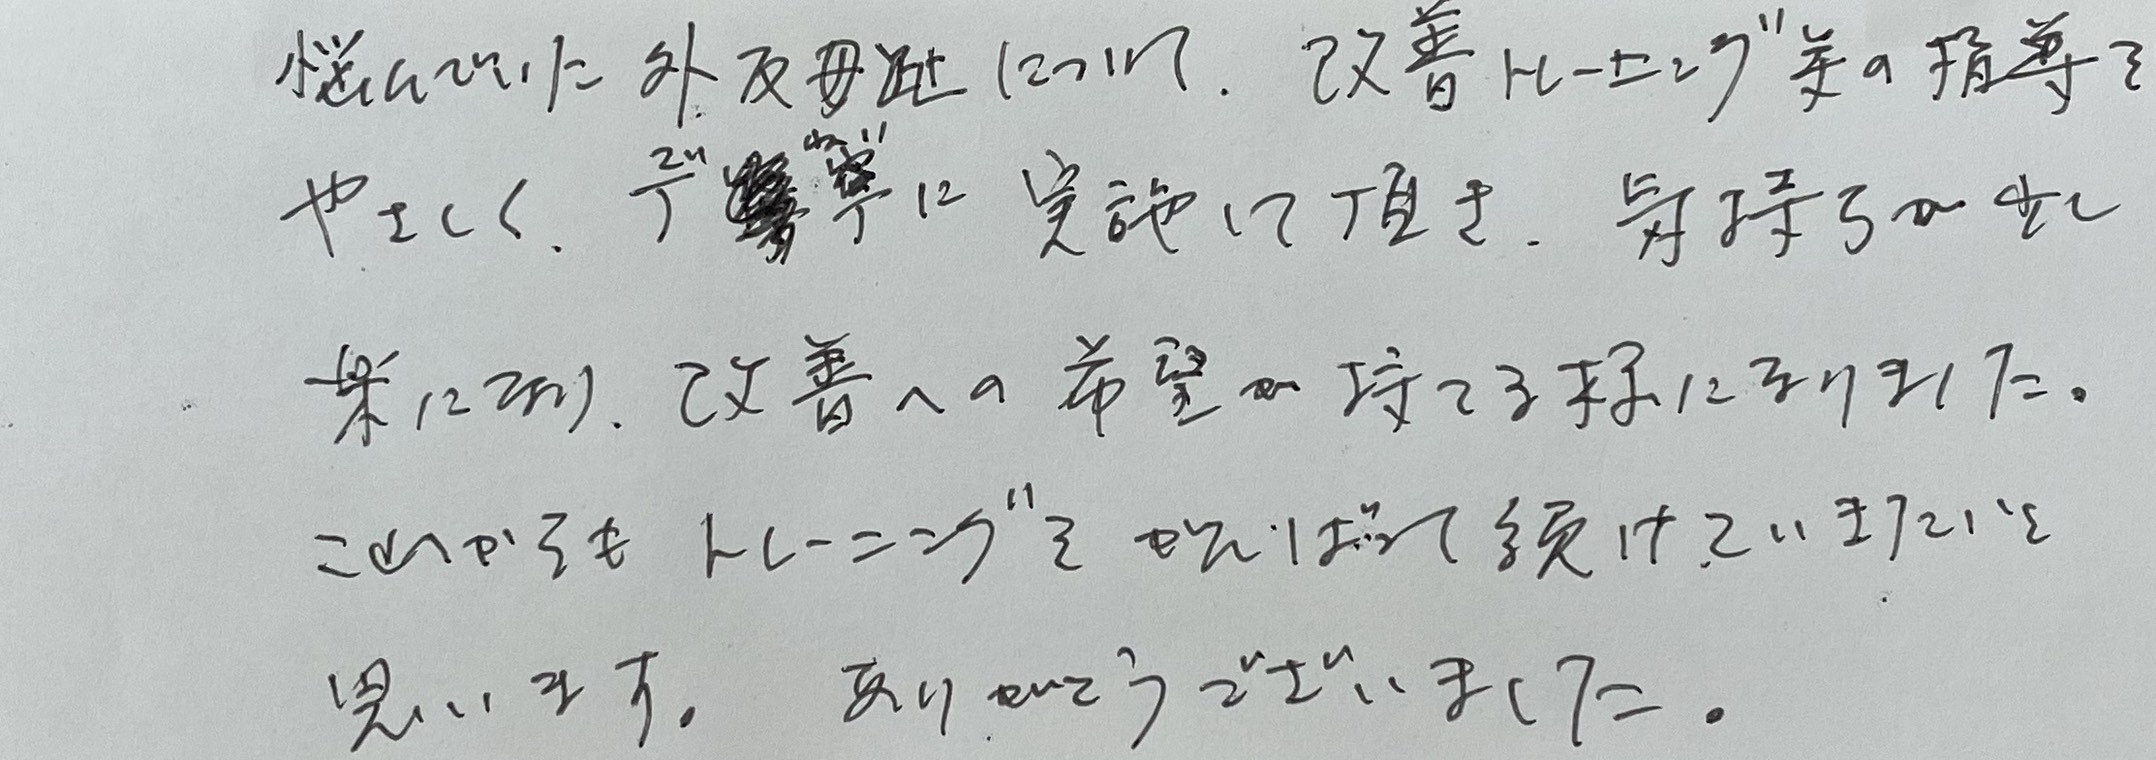 悩んでいた外反母趾について、改善トレーニング等の指導を
やさしく、丁寧に実施して頂き、気持ちが少し
楽になり、改善への希望が持てる様になりました。
これからもトレーニングをがんばって続けていきたいと
思います。ありがとうございました。